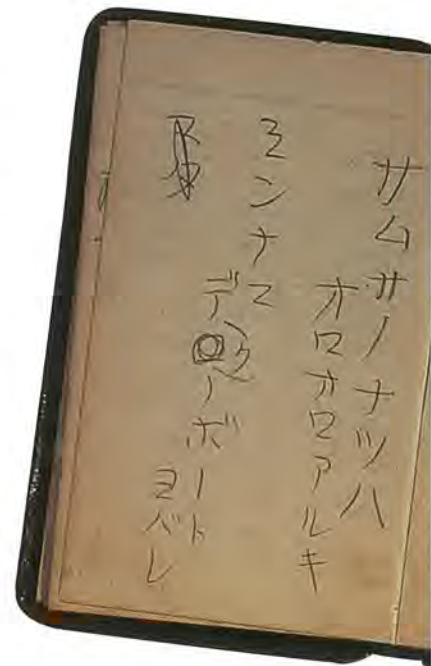 サムサノナツハ
オロオロアルキ
ミンナニ
デクノボート
ヨバレ